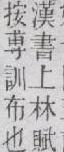 漢書上林賦
按尃訓布也